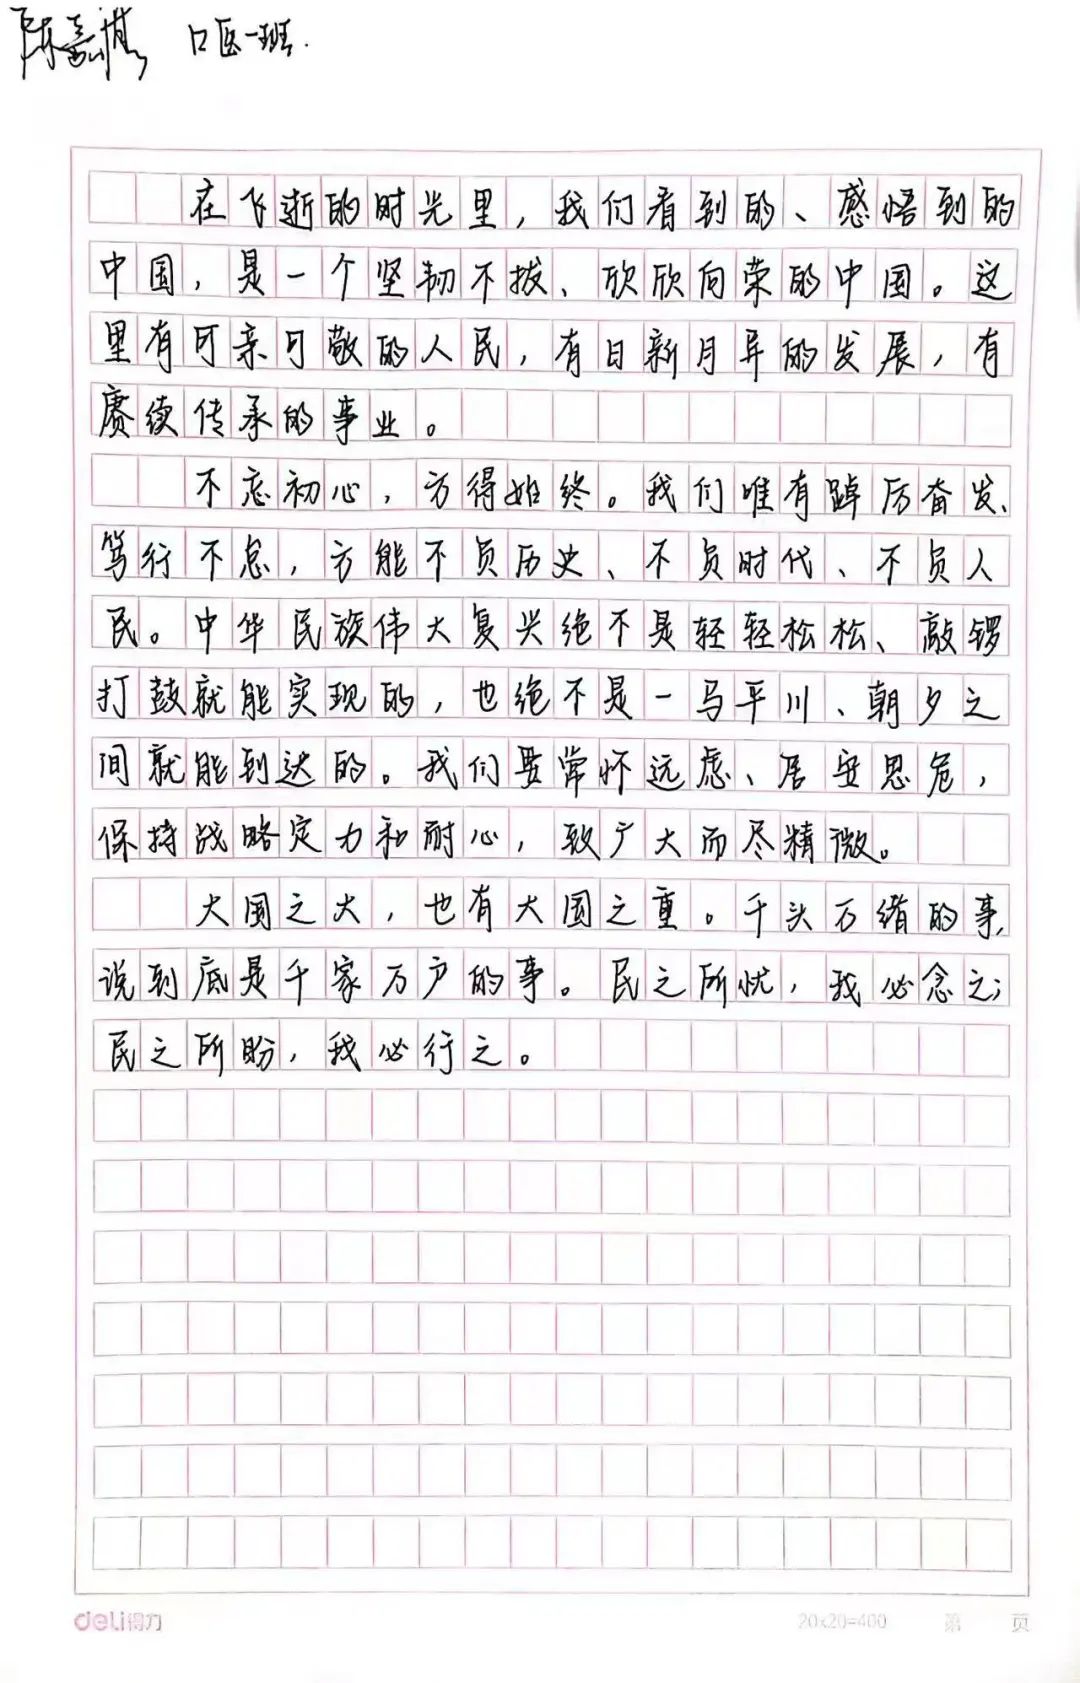 陈嘉琪 口医一班.
在飞逝的时光里，我们看到的、感悟到的
中国，是一个坚韧不拔、欣欣向荣的中国。这
里有可亲可敬的人民，有日新月异的发展，有
赓续传承的事业。
不忘初心，方得始终。我们唯有踔厉奋发、
笃行不怠，方能不负历史、不负时代、不负人
民。中华民族伟大复兴绝不是轻轻松松、敲锣
打鼓就能实现的，也绝不是一马平川、朝夕之
间就能到达的。我们要常怀远虑、居安思危，
保持战略定力和耐心，致广大而尽精微。
大国之大，也有大国之重。千头万绪的事，
说到底是千家万户的事。民之所忧，我必念之；
民之所盼，我必行之。
deli得力 20x20=400 第 页